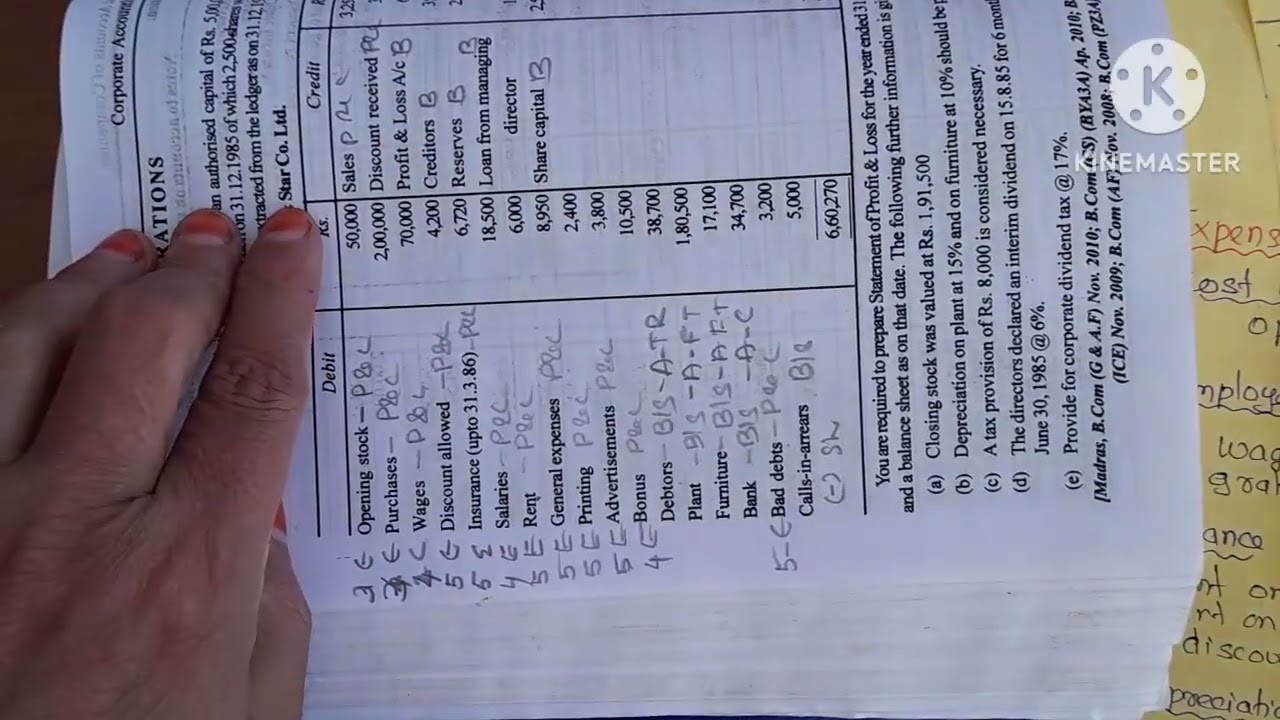 Corporate Accoun
RATIONS
an authorised capital of Rs. 5,00
on 31.12.1985 of which 2,500 shares w
xtracted from the ledger as on 31.12.19
Star Co. Ltd.
Debit
Rs.
Credit
R
3 E Opening stock - P&L 50,000 Sales P&L 3,25
3 E Purchases - P&L 2,00,000 Discount received P&L
4 E Wages - P&L 70,000 Profit & Loss A/c B
5 E Discount allowed - P&L 4,200 Creditors B
5 E Insurance (upto 31.3.86) - P&L 6,720 Reserves B
4 E Salaries - P&L 18,500 Loan from managing B
5 E Rent - P&L 6,000 director
5 E General expenses P&L 8,950 Share capital B
5 E Printing P&L 2,400
5 E Advertisements P&L 3,800
4 E Bonus P&L 10,500
Debtors - B/S - A - TR 38,700
Plant - B/S - A - FT 1,80,500
Furniture - B/S - A FT 17,100
Bank - B/S - A - C 34,700
5 - E Bad debts - P&L 3,200
Calls-in-arrears B/S 5,000
(-) Sh
6,60,270
You are required to prepare Statement of Profit & Loss for the year ended 31
and a balance sheet as on that date. The following further information is gi
(a) Closing stock was valued at Rs. 1,91,500
(b) Depreciation on plant at 15% and on furniture at 10% should be p
(c) A tax provision of Rs. 8,000 is considered necessary.
(d) The directors declared an interim dividend on 15.8.85 for 6 mont
June 30, 1985 @ 6%.
(e) Provide for corporate dividend tax @ 17%.
[Madras, B.Com (G & A.F) Nov. 2010; B.Com (C.S) (BYA3A) Ap. 2010; B
(ICE) Nov. 2009; B.Com (A.F) Nov. 2008; B.Com (PZ3A
K
KINEMASTER
xpens
ost
o
mploy
wag
gra
ance
nt on
nt on
discou
preciati